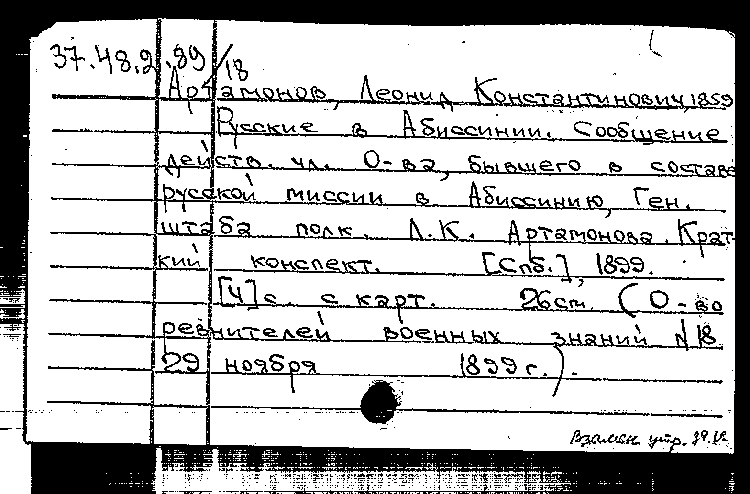 37.48.2.89/18
Артамонов, Леонид Константинович, 1859
Русские в Абиссинии. Сообщение
действ. чл. О-ва, бывшего в составе
русской миссии в Абиссинию, Ген.
штаба полк. Л.К. Артамонова. Крат-
кий конспект. [Спб.], 1899.
[4] с. с карт. 26 см. (О-во
ревнителей военных знаний N 18
29 ноября 1899 г.).
Взамен утр.